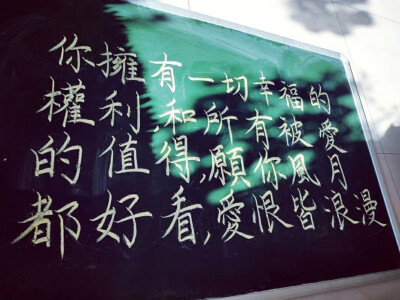 你擁有一切幸福的
權利,和所有被愛
的值得,願你風月
都好看,愛恨皆浪漫